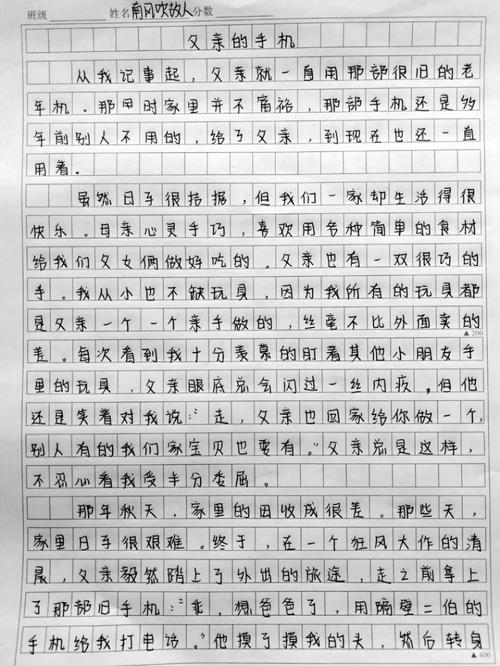 班级 姓名南风吹故人 分数
父亲的手机
从我记事起，父亲就一直用那部很旧的老
年机。那时家里并不富裕，那部手机还是多
年前别人不用的，给了父亲，到现在也还一直
用着。
虽然日子很拮据，但我们一家却生活得很
快乐。母亲心灵手巧，喜欢用各种简单的食材
给我们父女俩做好吃的。父亲也有一双很巧的
手。我从小也不缺玩具，因为我所有的玩具都
是父亲一个一个亲手做的，丝毫不比外面卖的
▲200
差。每次看到我十分羡慕的盯着其他小朋友手
里的玩具，父亲眼底总会闪过一丝内疚。但他
还是笑着对我说：“走，父亲也回家给你做一个，
别人有的我们家宝贝也要有。”父亲总是这样，
不忍心看我受半分委屈。
那年秋天，家里的田收成很差。那些天，
家里日子很艰难。终于，在一个狂风大作的清
晨，父亲毅然踏上了外出的旅途，走之前拿上
了那部旧手机：“乖，想爸爸了，用隔壁二伯的
手机给我打电话。”他摸了摸我的头，然后转身
▲400